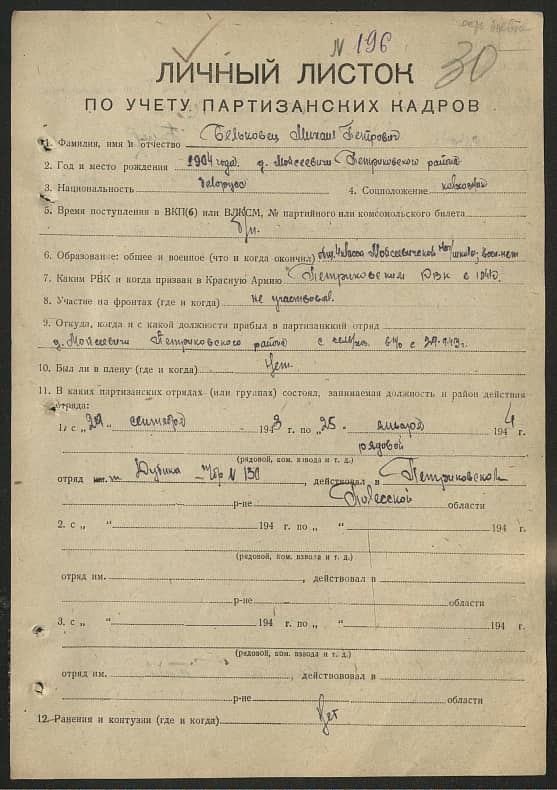 N 196
30
ЛИЧНЫЙ ЛИСТОК
ПО УЧЕТУ ПАРТИЗАНСКИХ КАДРОВ
1. Фамилия, имя и отчество Бельковец Михаил Петрович
2. Год и место рождения 1904 года д. Мойсеевичи Петриковского района
3. Национальность белорус 4. Соцположение колхозник
5. Время поступления в ВКП(б) или ВЛКСМ, № партийного или комсомольского билета
б/п.
6. Образование: общее и военное (что и когда окончил) общ. 4 класса Мойсеевичской школы; воен. нет
7. Каким РВК и когда призван в Красную Армию Петриковским РВК в
8. Участие на фронтах (где и когда) не участвовал.
9. Откуда, когда и с какой должности прибыл в партизанкий отряд
д. Мойсеевичи Петриковского района с
10. Был ли в плену (где и когда) Нет.
11. В каких партизанских отрядах (или группах) состоял, занимаемая должность и район действия
отряда:
1. с „29 сентября 1943 г. по „25 января 1944
рядовой
(рядовой, ком. взвода и т. д.)
отряд им. т. N 130, действовал в Петриковском
р-не Полесской области
2. с „ “ 194 г. по „ “ 194
(рядовой, ком. взвода и т. д.)
отряд им. , действовал в
р-не области
3. с „ “ 194 г. по „ “ 194 г.
(рядовой, ком. взвода и т. д.)
отряд им. , действововал в
р-не области
12. Ранения и контузии (где и когда) Нет